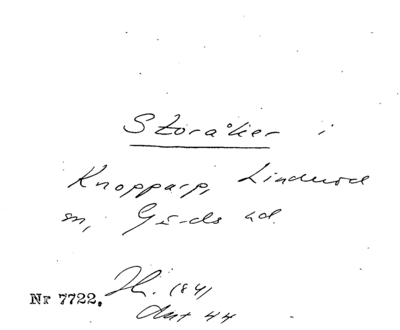 Storåker i
Knopparp, Linderöd
sn, Gärds hd.
Nr 7722. Hi. (84)
Akt 44